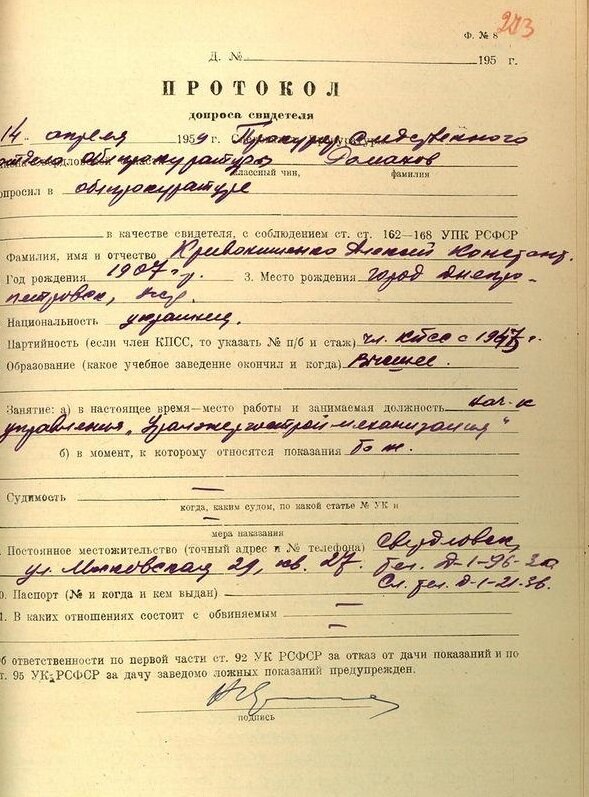 203
Ф. № 8
Д. № 195 г.
ПРОТОКОЛ
допроса свидетеля
14 апреля 1959 г. Прокурор следственного
отдела облпрокуратуры Романов
классный чин, фамилия
опросил в облпрокуратуре
в качестве свидетеля, с соблюдением ст. ст. 162—168 УПК РСФСР
Фамилия, имя и отчество Кривонищенко Алексей Констант.
Год рождения 1907 г. 3. Место рождения город Днепро-
петровск,
Национальность украинец.
Партийность (если член КПСС, то указать № п/б и стаж) чл. КПСС с г.
Образование (какое учебное заведение окончил и когда) Высшее.
Занятие: а) в настоящее время—место работы и занимаемая должность нач-к
управления „Уралэнергостроймеханизация"
б) в момент, к которому относятся показания то ж.
Судимость —
когда, каким судом, по какой статье № УК и
—
мера наказания
. Постоянное местожительство (точный адрес и № телефона) Свердловск,
ул. Московская 29, кв. 27. тел. Д-1-96-
0. Паспорт (№ и когда и кем выдан) Сл. тел. Д-1-21-36.
1. В каких отношениях состоит с обвиняемым —
Об ответственности по первой части ст. 92 УК РСФСР за отказ от дачи показаний и по
т. 95 УК РСФСР за дачу заведомо ложных показаний предупрежден.
подпись